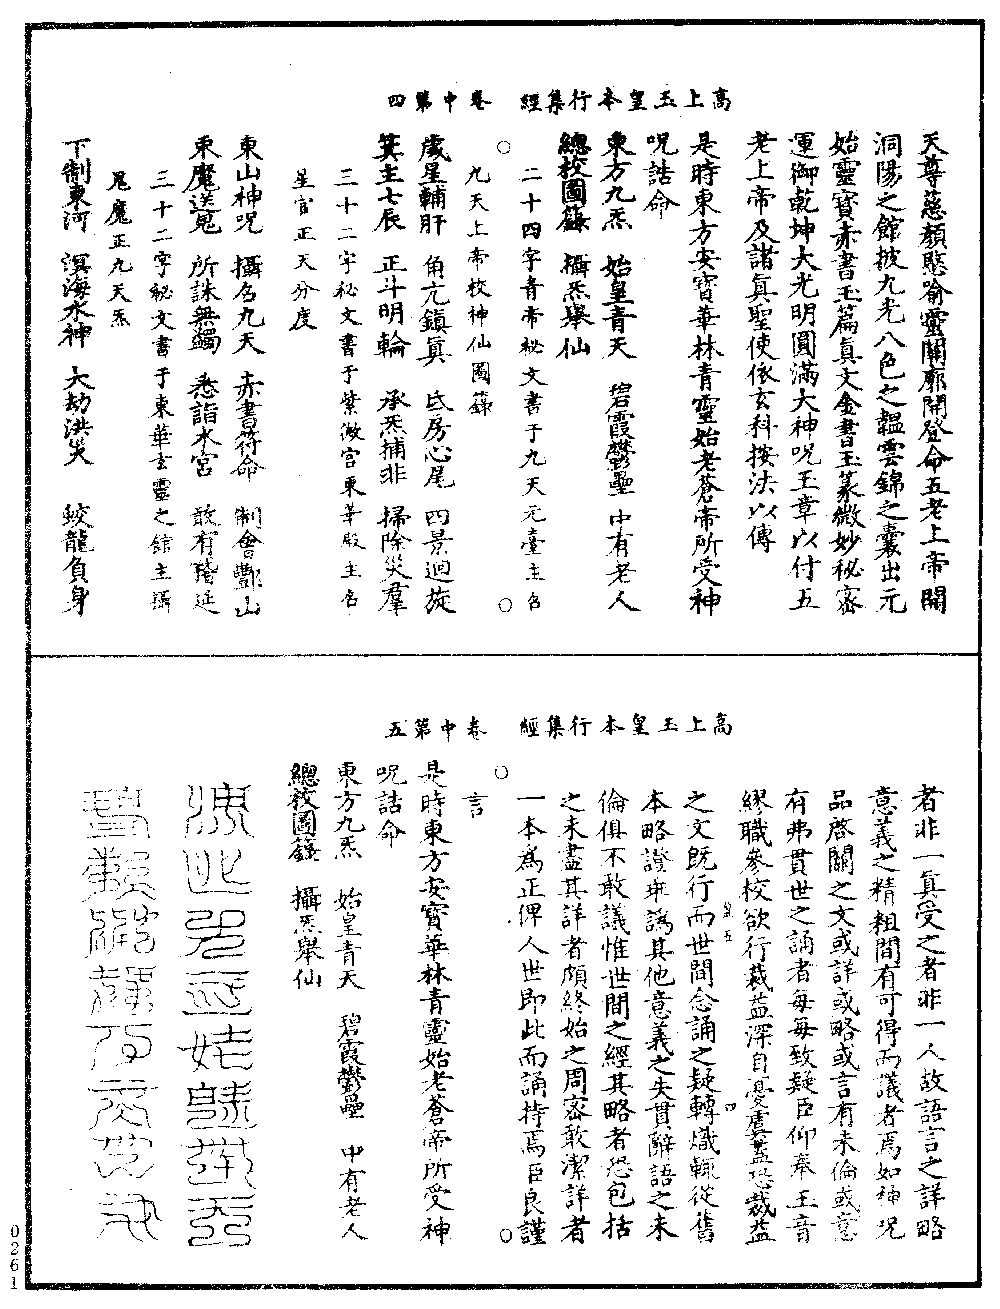 高上玉皇本行集經　卷中第四
天尊慈顏愍喻靈關廓開登命五老上帝開
洞陽之館披九光八色之韞雲錦之囊出元
始靈寶赤書玉篇真文金書玉篆微妙秘密
運御乾坤大光明圓滿大神呪玉章以付五
老上帝及諸真聖使依玄科按法以傳
是時東方安寶華林青靈始老蒼帝所受神
呪誥命
東方九炁　始皇青天　碧霞鬱壘　中有老人
總校圖籙　攝炁舉仙
二十四字青帝秘文書于九天元臺主名
九天上帝校神仙圖籙
歲星輔肝　角亢鎮真　氐房心尾　四景迴旋
箕主七辰　正斗明輪　承炁捕非　掃除災羣
三十二字秘文書于紫微宮東華殿主名
星官正天分度
東山神呪　攝召九天　赤書符命　制會酆山
束魔送鬼　所誅無蠲　悉詣水宮　敢有稽延
三十二字秘文書于東華玄靈之館主攝
鬼魔正九天炁
下制東河　溟海水神　大劫洪災　蛟龍負身
高上玉皇本行集經　卷中第五
者非一真受之者非一人故語言之詳略
意義之精粗間有可得而議者焉如神呪
品啓關之文或詳或略或言有未倫或意
有弗貫世之誦者每每致疑臣仰奉玉音
繆職參校欲行裁益深自憂虞蓋恐裁益
之文既行而世間念誦之疑轉熾輒從舊
本略證舛譌其他意義之失貫辭語之未
倫俱不敢議惟世間之經其略者恐包括
之未盡其詳者頗終始之周密敢潔詳者
一本爲正俾人世即此而誦持焉臣良謹
言
是時東方安寶華林青靈始老蒼帝所受神
呪誥命
東方九炁　始皇青天　碧霞鬱壘　中有老人
總校圖籙　攝炁舉仙
0261